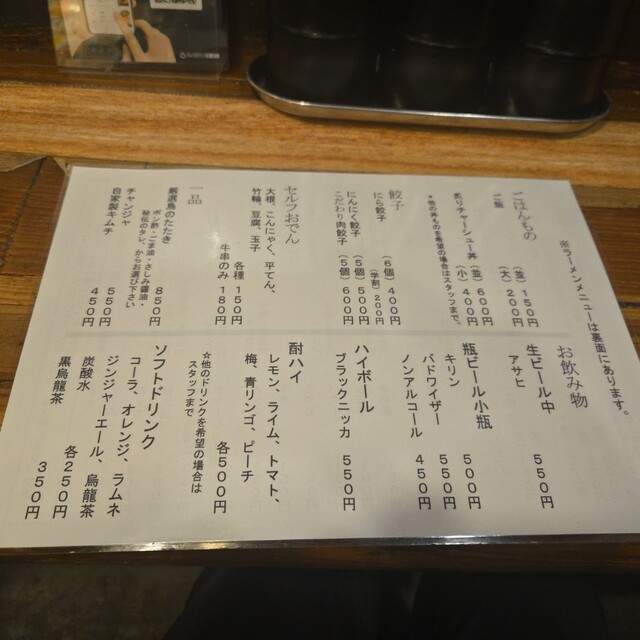 ※ラーメンメニューは裏面にあります。
ごはんもの
ご飯 (並) 150円
(大) 200円
炙りチャーシュー丼 (並) 600円
(小) 400円
*他の丼ものを希望の場合はスタッフまで。
餃子
にら餃子 (6個) 400円
(半割) 200円
にんにく餃子 (5個) 500円
こだわり肉餃子 (5個) 600円
セルフおでん
大根、こんにゃく、平てん、
竹輪、豆腐、玉子
各種 150円
牛串のみ 180円
一品
厳選鳥のたたき 850円
ポン酢・ごま油・さしみ醤油・
秘伝のタレ、からお選び下さい
チャンジャ 550円
自家製キムチ 450円
お飲み物
生ビール中
アサヒ 550円
瓶ビール小瓶
キリン 500円
バドワイザー 550円
ノンアルコール 450円
ハイボール
ブラックニッカ 550円
酎ハイ
レモン、ライム、トマト、
梅、青リンゴ、ピーチ
各500円
☆他のドリンクを希望の場合は
スタッフまで
ソフトドリンク
コーラ、オレンジ、ラムネ
ジンジャーエール、烏龍茶
炭酸水 各250円
黒烏龍茶 350円